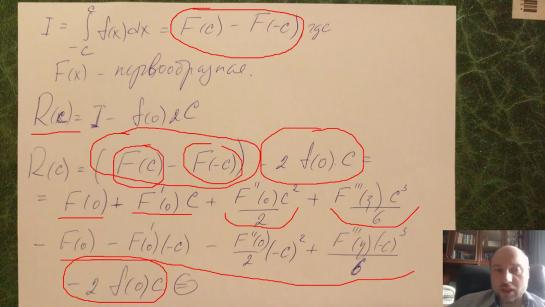 I = ∫_{-c}^{c} f(x)dx = F(c) - F(-c) где
F(x) - первообразная.
R(c) = I - f(0)2C
R(c) = (F(c) - F(-c)) - 2 f(0) C =
= F(0) + F'(0) C + F''(0)C²/2 + F'''(ξ)C³/6
- F(0) - F'(0)(-c) - F''(0)/2 (-c)² + F'''(η)(-c)³/6
- 2 f(0)C ⊜